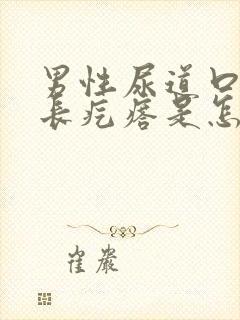 男性尿道口
长疙瘩是怎
崔严